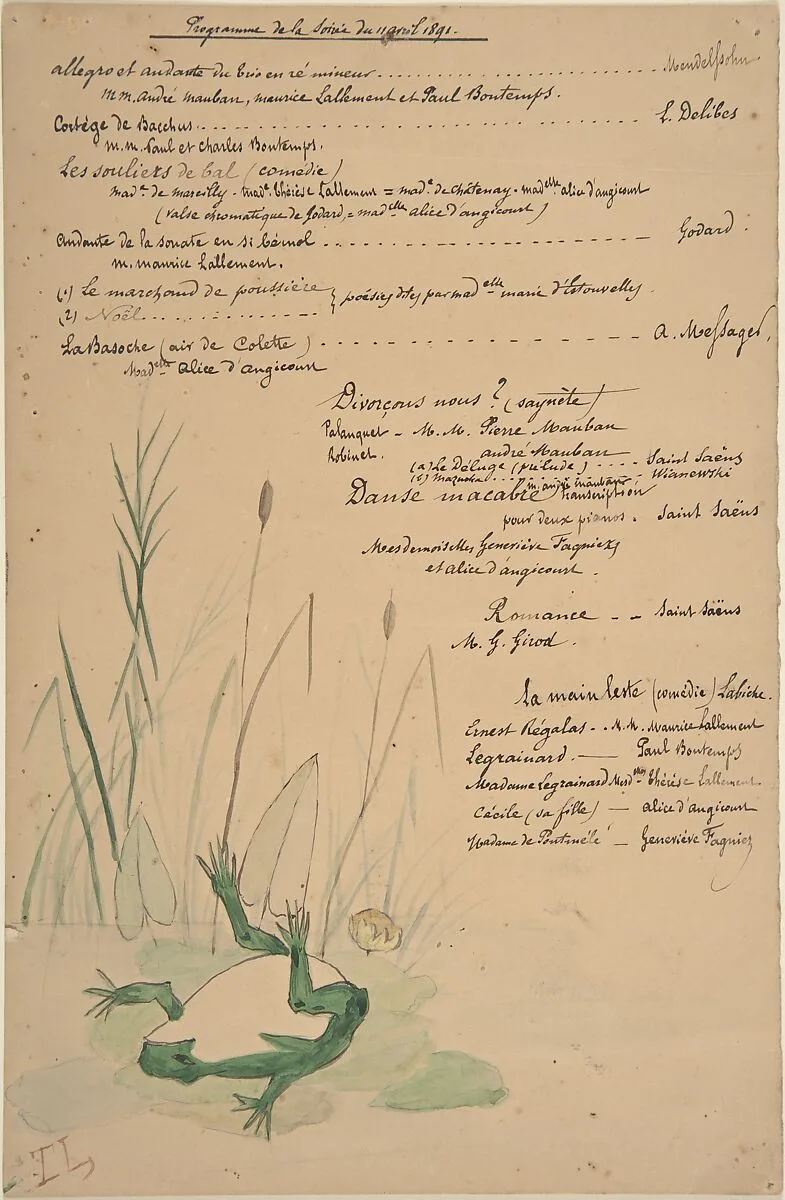 Programme de la Soirée du 11 avril 1891.
allegro et andante du trio en ré mineur.......................... Mendelssohn
m.m. André Mauban, maurice Lallement et Paul Bontemps.
Cortège de Bacchus.......................... L. Delibes
m.m. Paul et Charles Bontemps.
Les souliers de bal (comédie)
mad.e de mareilly - mad.e thérèse Lallement = mad.e de châtenay - mad.elle alice d'angicourt
(valse chromatique de Godard, = mad.elle alice d'angicourt)
Andante de la sonate en si bémol .......................... Godard.
m. maurice Lallement.
(1) Le marchand de poussière } poésies dites par mad.elle marie d'Estouvelles.
(2) Noël..................
La Basoche (air de Colette) .......................... A. Messager,
Mad.elle alice d'angicourt
Divorçons nous? (saynète)
Palanquet - M.M. Pierre Mauban
Robinet. andré Mauban
(a) Le Déluge (prélude) ..... Saint Saëns
Mazurka..... m. andré Mauban Wianewski
Danse macabre transcription
pour deux pianos. Saint Saëns
Mesdemoiselles Geneviève Fagniez
et alice d'angicourt.
Romance - - Saint Saëns
M. G. Girod.
La main leste (comédie) Labiche.
Ernest Régalas - . M.M. Maurice Lallement
Legrainard. — Paul Bontemps
Madame Legrainard Mesd.mes Thérèse Lallement.
Cécile (sa fille) — alice d'angicourt
Madame de Pontmêlé — Geneviève Fagniez
TL